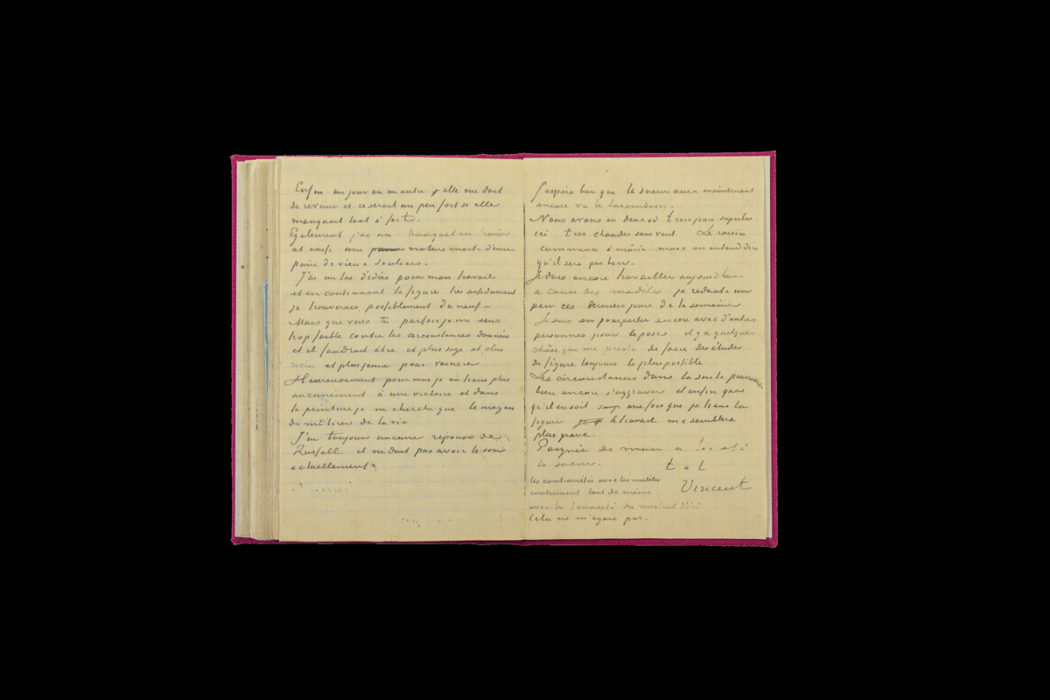 Enfin un jour ou un autre elle me doit
de revenir et ce serait un peu fort si elle
manquait tout à fait.
Egalement j'ai un bouquet en train
et aussi une nature morte d'une
paire de vieux souliers.
J'ai un tas d'idées pour mon travail
et en continuant la figure très assidument
je trouverais possiblement du neuf –
Mais que veux tu parfois je me sens
trop faible contre les circonstances données
et il faudrait être et plus sage et plus
riche et plus jeune pour vaincre
Heureusement pour moi je ne tiens plus
aucunement à une victoire et dans
la peinture je ne cherche que le moyen
de me tirer de la vie
J'ai toujours aucune réponse de
Russell et ne doit pas avoir le sou
actuellement
J'espère bien que la soeur aura maintenant
encore vu le Luxembourg.
Nous avons eu deux ou trois jours superbes
ici très chauds sans vent Le raisin
commence à mûrir mais on entend dire
qu'il sera pas bon.
Je dois encore travailler aujourd'hui
a cause des modèles je redoute un
peu ces derniers jours de la semaine
Je suis en pourparler encore avec d'autres
personnes pour la pose il y a quelque
chose que me de faire des études
de figure toujours le plus possible
Les circonstances dans la suite peuvent
bien encore s'aggraver et enfin quoi
qu'il en soit une fois que je tiens la
figure le travail me semblera
plus grave.
Poignée de main a toi et à
la soeur. t. à t.
Vincent
les contrariétés avec les modèles
continuent tout de même
avec la tenacité du mistral d'ici
Cela ne m'égaie pas.